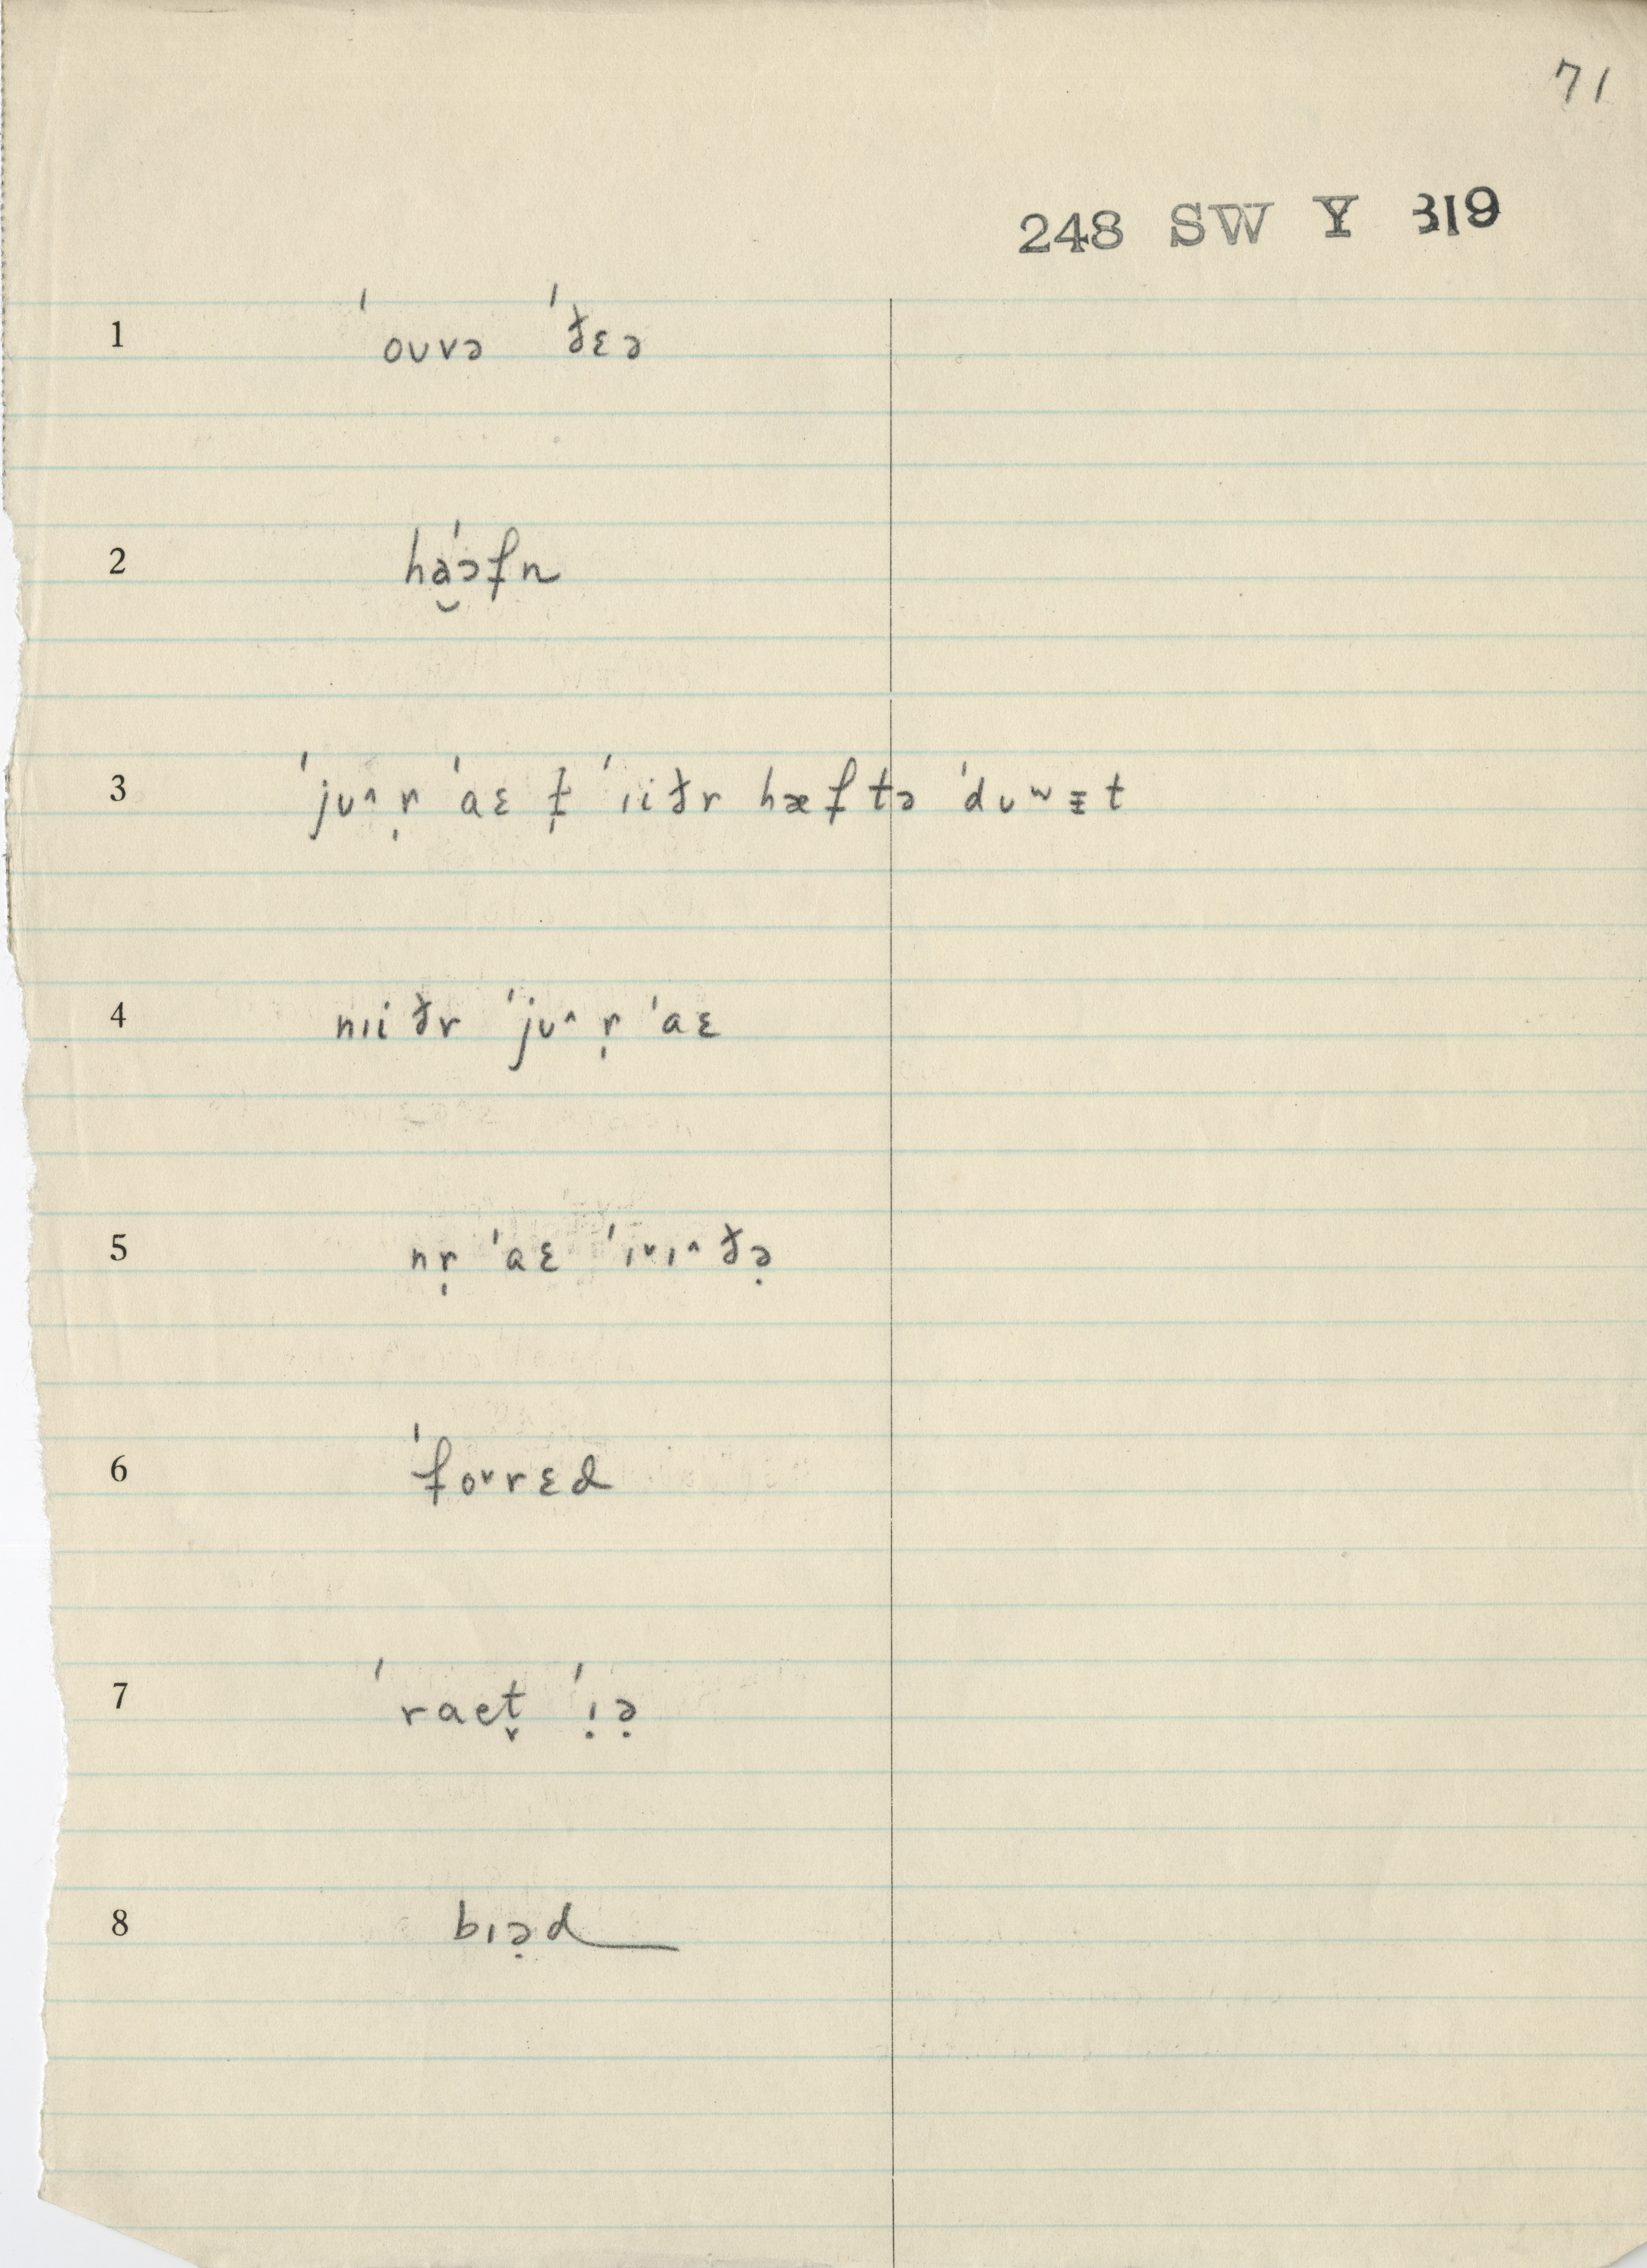 71
248 SW Y 319
1 ˈoʊvə ˈðɛə
2 ha̮ˈɔfn
3 ˈjʊ^ r̩ ˈaɛ t̩ ˈɪiðr hæftə ˈdʊwᵻt
4 nɪiðr ˈjʊ^ r̩ ˈaɛ
5 nr̩ ˈaɛ ˈɪ˅ɪ^ðə̣
6 ˈfo˅rɛd
7 ˈraet̬ ˈɪ̣ə̣
8 bɪə̣d